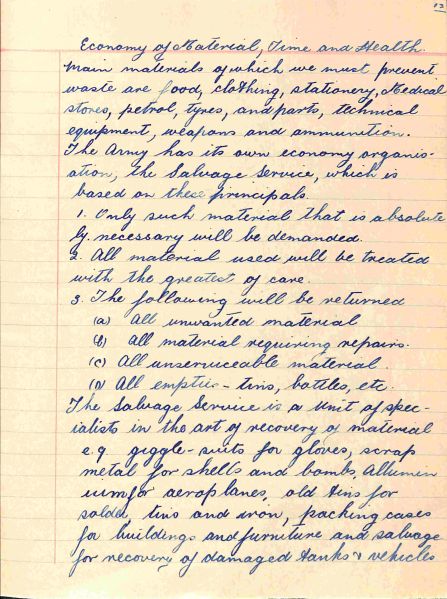 12
Economy of Material, Time and Health.
Main materials of which we must prevent
waste are food, clothing, stationery, Medical
stores, petrol, tyres, and parts, technical
equipment, weapons and ammunition.
The Army has its own economy organis-
ation, the Salvage Service, which is
based on these principals.
1. Only such material that is absolute
ly. necessary will be demanded.
2. All material used will be treated
with the greatest of care.
3. The following will be returned
(a) All unwanted material
(b) All material requiring repairs.
(c) All unserviceable material.
(d) All empties - tins, bottles, etc.
The Salvage Service is a Unit of spec-
ialists in the art of recovery of material
e.g. giggle-suits for gloves, scrap
metal for shells and bombs, Allumin
iumfor aeroplanes, old tins for
solder, tins and iron, packing cases
for buildings and furniture and salvage
for recovery of damaged tanks & vehicles